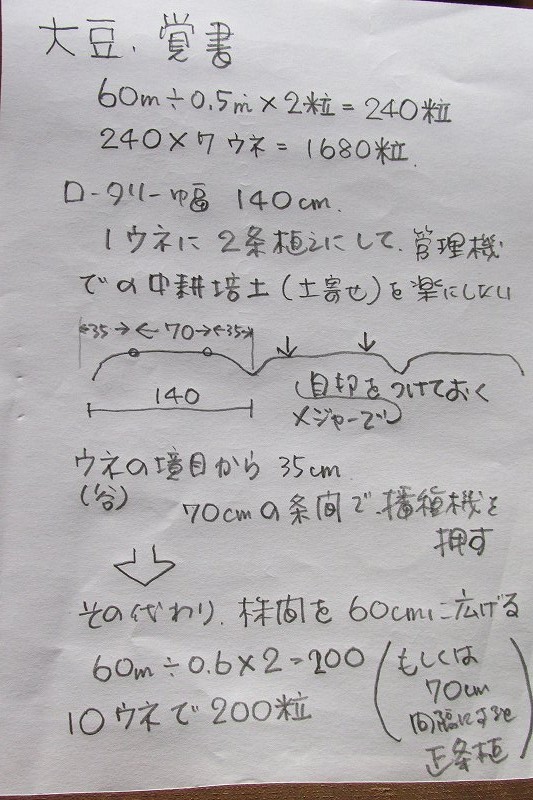 大豆.覚書
60m÷0.5m×2粒=240粒
240×7ウネ=1680粒.
ロータリー幅 140cm.
1ウネに2条植えにして.管理機
での中耕培土(土寄せ)を楽にしたい
35 70 35
140
目印をつけておく
メジャーで
ウネの境目から35cm.
(谷)
70cmの条間で.播種機を
押す
その代わり.株間を60cmに広げる
60m÷0.6×2=200
10ウネで200粒
(もしくは
70cm
間隔にすると
正条植)